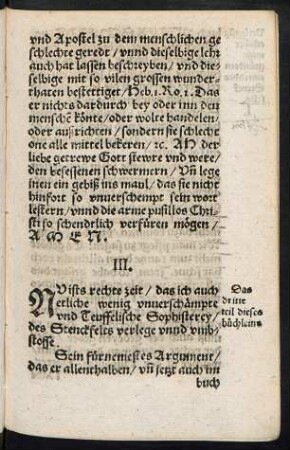 vnd Apostel zu dem menschlichen ge
schlechte geredt / vnnd dieselbige lehr
auch hat lassen beschreyben / vnd die-
selbige mit so vilen grossen wunder-
thaten bestettiget / Heb. 1. Ro. 1. Das
er nichts dardurch bey oder inn den
mensche͂ kònte / oder wolte handelen /
oder außrichten / sondern sie schlecht
one alle mittel bekeren / ꝛc. Ah der
liebe getrewe Gott stewre vnd were /
den besessenen schwermern / Vñ lege
inen ein gebiß ins maul / das sie nicht
hinfort so vnuerschempt sein wort
lestern / vnnd die arme pusillos Chri-
sti so schendtlich verfüren mögen /
A M E N.
III.
NVists rechte zeit / das ich auch
etliche wenig vnuerschämpte
vnd Teuffelische Sophisterey /
des Stenckfelts verlege vnnd vmb-
stosse.
Das
dritte
teil dieses
büchleins
Sein fürnemestes Argument /
das er allenthalben / vñ jetzt auch im
buch